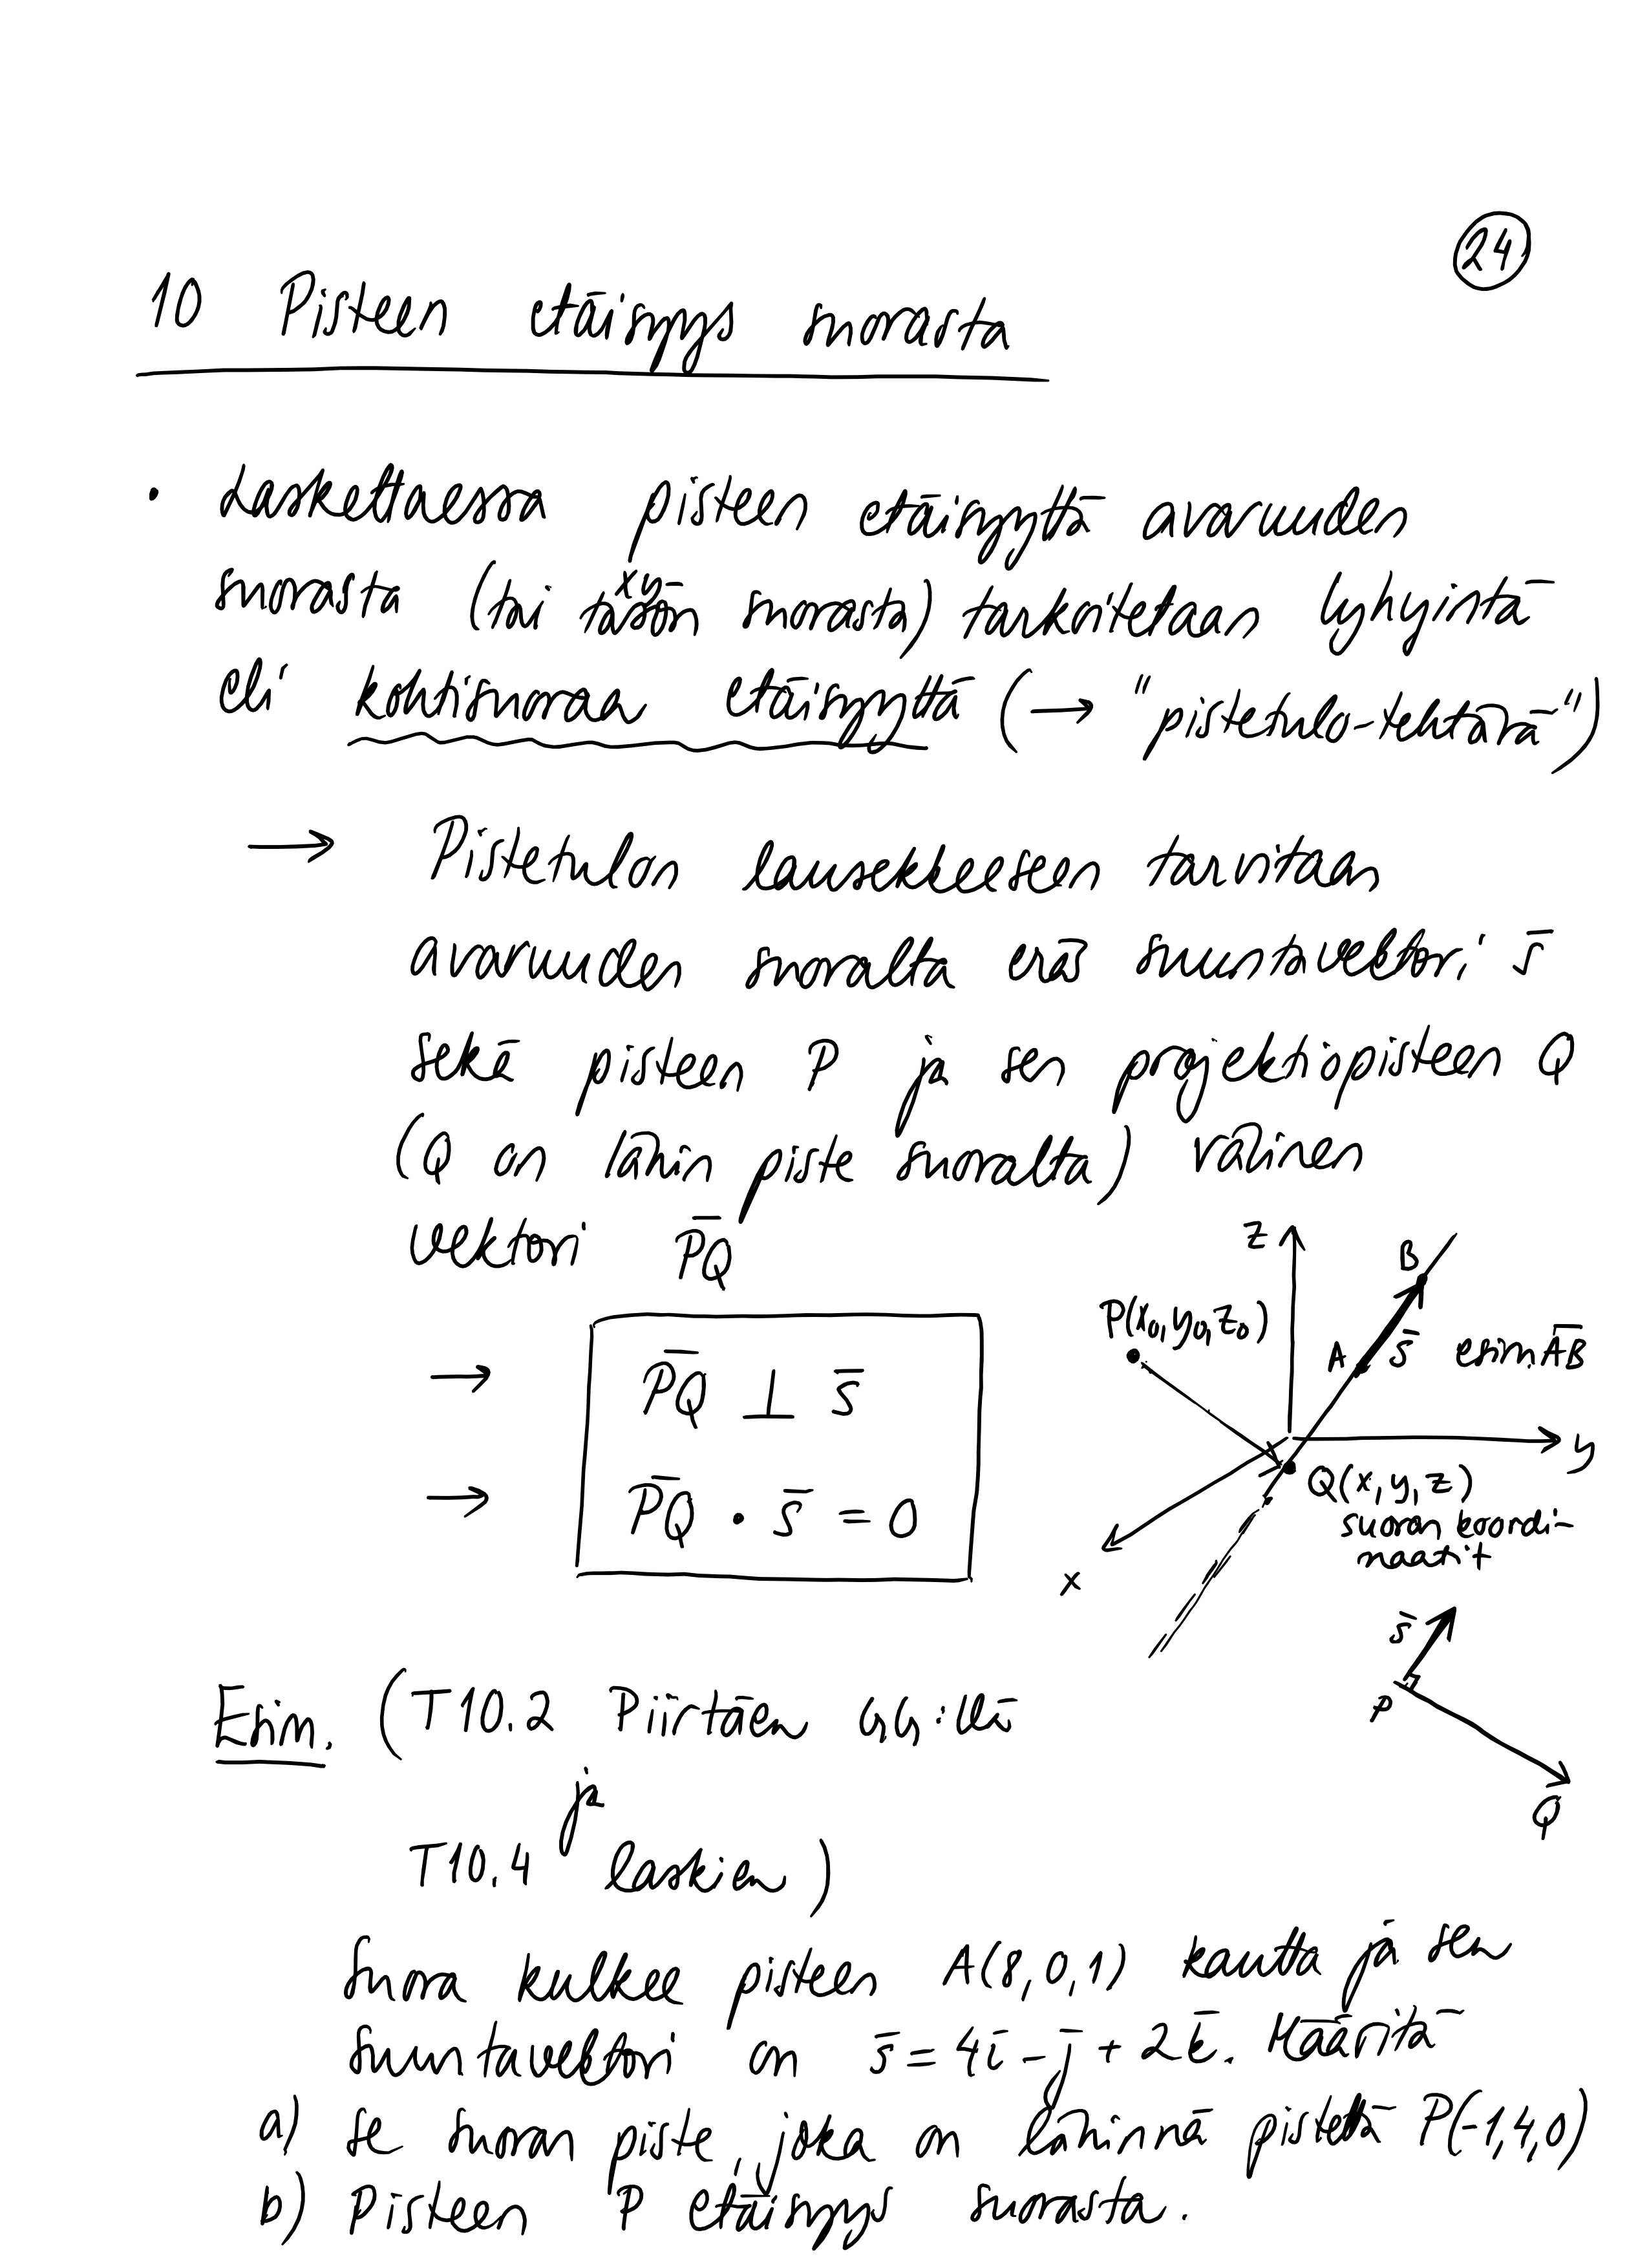 24
10 Pisteen etäisyys suorasta
• Laskettaessa pisteen etäisyyttä avaruuden
suorasta (tai xy-tason suorasta) tarkoitetaan lyhyintä
eli kohtisuoraa etäisyyttä (→ "pistetulo-tehtävä")
→ Pistetulon lausekkeeseen tarvitaan
avaruuden suoralta eräs suuntavektori s̄
sekä pisteen P ja sen projektiopisteen Q
(Q on lähin piste suoralta) välinen
vektori P̄Q̄
→ P̄Q̄ ⊥ s̄
→ P̄Q̄ · s̄ = 0
z
B
P(x₀, y₀, z₀)
A s̄ esim. ĀB̄
y
Q(x, y, z)
suoran koordi-
naatit
x
s̄
P
Q
Esim. (T10.2 Piirtäen GG:llä
ja
T10.4 laskien)
Suora kulkee pisteen A(8, 0, 1) kautta ja sen
suuntavektori on s̄ = 4ī - j̄ + 2k̄. Määritä
a) se suoran piste, joka on lähinnä pistettä P(-1, 4, 0)
b) Pisteen P etäisyys suorasta.